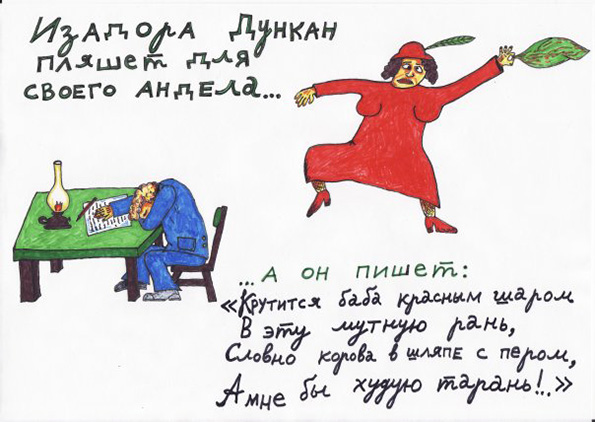 Изадора Дункан
пляшет для
своего андела...
...А он пишет:
«Крутится баба красным шаром
В эту мутную рань,
Словно корова в шляпе с пером,
А мне бы худую тарань!..»